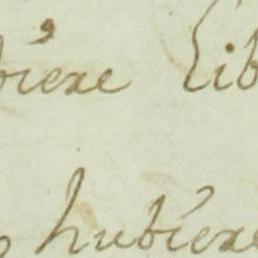 biere lib
hubiere